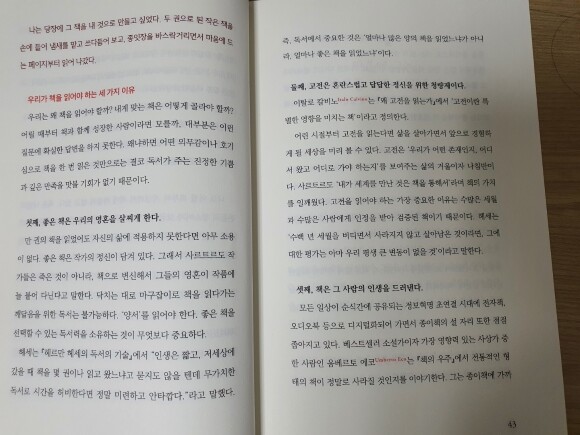 나는 당장에 그 책을 내 것으로 만들고 싶었다. 두 권으로 된 작은 책을
손에 들어 냄새를 맡고 쓰다듬어 보고, 종잇장을 바스락거리면서 마음에 드
는 페이지부터 읽어 나갔다.
우리가 책을 읽어야 하는 세 가지 이유
우리는 왜 책을 읽어야 할까? 내게 맞는 책은 어떻게 골라야 할까?
어릴 때부터 책과 함께 성장한 사람이라면 모를까, 대부분은 이런
질문에 확실한 답변을 하지 못한다. 왜냐하면 어떤 의무감이나 호기
심으로 책을 한 번 읽은 것만으로는 결코 독서가 주는 진정한 기쁨
과 깊은 만족을 맛볼 기회가 없기 때문이다.
첫째, 좋은 책은 우리의 영혼을 살찌게 한다.
만 권의 책을 읽었어도 자신의 삶에 적용하지 못한다면 아무 소용
이 없다. 좋은 책은 작가의 정신이 담겨 있다. 그래서 사르트르도 작
가들은 죽은 것이 아니라, 책으로 변신해서 그들의 영혼이 작품에
늘 붙어 다닌다고 말한다. 닥치는 대로 마구잡이로 책을 읽다가는
깨달음을 위한 독서는 불가능하다. '양서'를 읽어야 한다. 좋은 책을
선택할 수 있는 독서력을 소유하는 것이 무엇보다 중요하다.
헤세는 『헤르만 헤세의 독서의 기술』에서 "인생은 짧고, 저세상에
갔을 때 책을 몇 권이나 읽고 왔느냐고 묻지도 않을 텐데 무가치한
독서로 시간을 허비한다면 정말 미련하고 안타깝다."라고 말했다.
즉, 독서에서 중요한 것은 '얼마나 많은 양의 책을 읽었느냐가 아니
라, 얼마나 좋은 책을 읽었느냐'이다.
둘째, 고전은 혼란스럽고 답답한 정신을 위한 청량제이다.
이탈로 칼비노Italo Calvino는 『왜 고전을 읽는가』에서 "고전이란 특
별한 영향을 미치는 책"이라고 정의한다.
어린 시절부터 고전을 읽는다면 삶을 살아가면서 앞으로 경험하
게 될 세상을 미리 볼 수 있다. 고전은 '우리가 어떤 존재인지, 어디
서 왔고 어디로 가야 하는지'를 보여주는 삶의 거울이자 나침반이
다. 사르트르도 '내가 세계를 만난 것은 책을 통해서'라며 책의 가치
를 일깨웠다. 고전을 읽어야 하는 가장 중요한 이유는 수많은 세월
과 수많은 사람에게 인정을 받아 검증된 책이기 때문이다. 헤세는
'수백 년 세월을 버티면서 사라지지 않고 살아남은 것이라면, 그에
대한 평가는 아마 우리 평생 큰 변동이 없을 것'이라고 말한다.
셋째, 책은 그 사람의 인생을 드러낸다.
모든 일상이 순식간에 공유되는 정보혁명 초연결 시대에 전자책,
오디오북 등으로 디지털화되어 가면서 종이책의 설 자리 또한 점점
좁아지고 있다. 베스트셀러 소설가이자 가장 영향력 있는 사상가 중
한 사람인 움베르토 에코Umberto Eco는 『책의 우주』에서 전통적인 형
태의 책이 정말로 사라질 것인지를 이야기한다. 그는 종이책에 가까
43